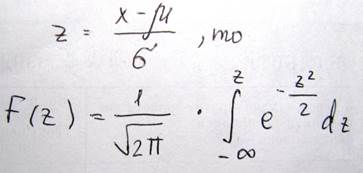 z = \frac{x - μ}{σ}, то
F(z) = \frac{1}{\sqrt{2π}} · \int_{-∞}^{z} e^{-\frac{z^2}{2}} dz